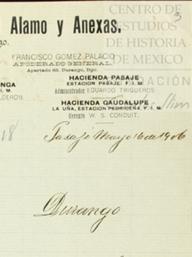 CENTRO DE
ESTUDIOS
DE HISTORIA
DE MEXICO
3
Alamo y Anexas.
go.
FRANCISCO GOMEZ PALACIO
APODERADO GENERAL.
Apartado 85. Durango, Dgo.
HACIENDA PASAJE
ESTACION PASAJE. F. I. M.
NGA
I. M.
Administrador EDUARDO TRIGUEROS
LDERON.
HACIENDA GUADALUPE
LA UÑA, ESTACION PEDRICEÑA, F. I. M.
W. S. CONDUIT.
18
Pasaje Mayo 16 de 1906
Durango